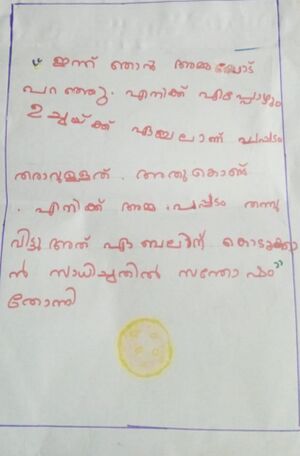 "ഇന്ന് ഞാൻ അമ്മയോട്
പറഞ്ഞു. എനിക്ക് എപ്പോഴും
ഉച്ചയ്ക്ക് ഏബലാണ് പപ്പടം
തരാറുള്ളത്. അതുകൊണ്ട്
. എനിക്ക് അമ്മ പപ്പടം തന്നു
വിട്ടു അത് ഏബലിന് കൊടുക്കാ
ൻ സാധിച്ചതിൽ സന്തോഷം"
തോന്നി